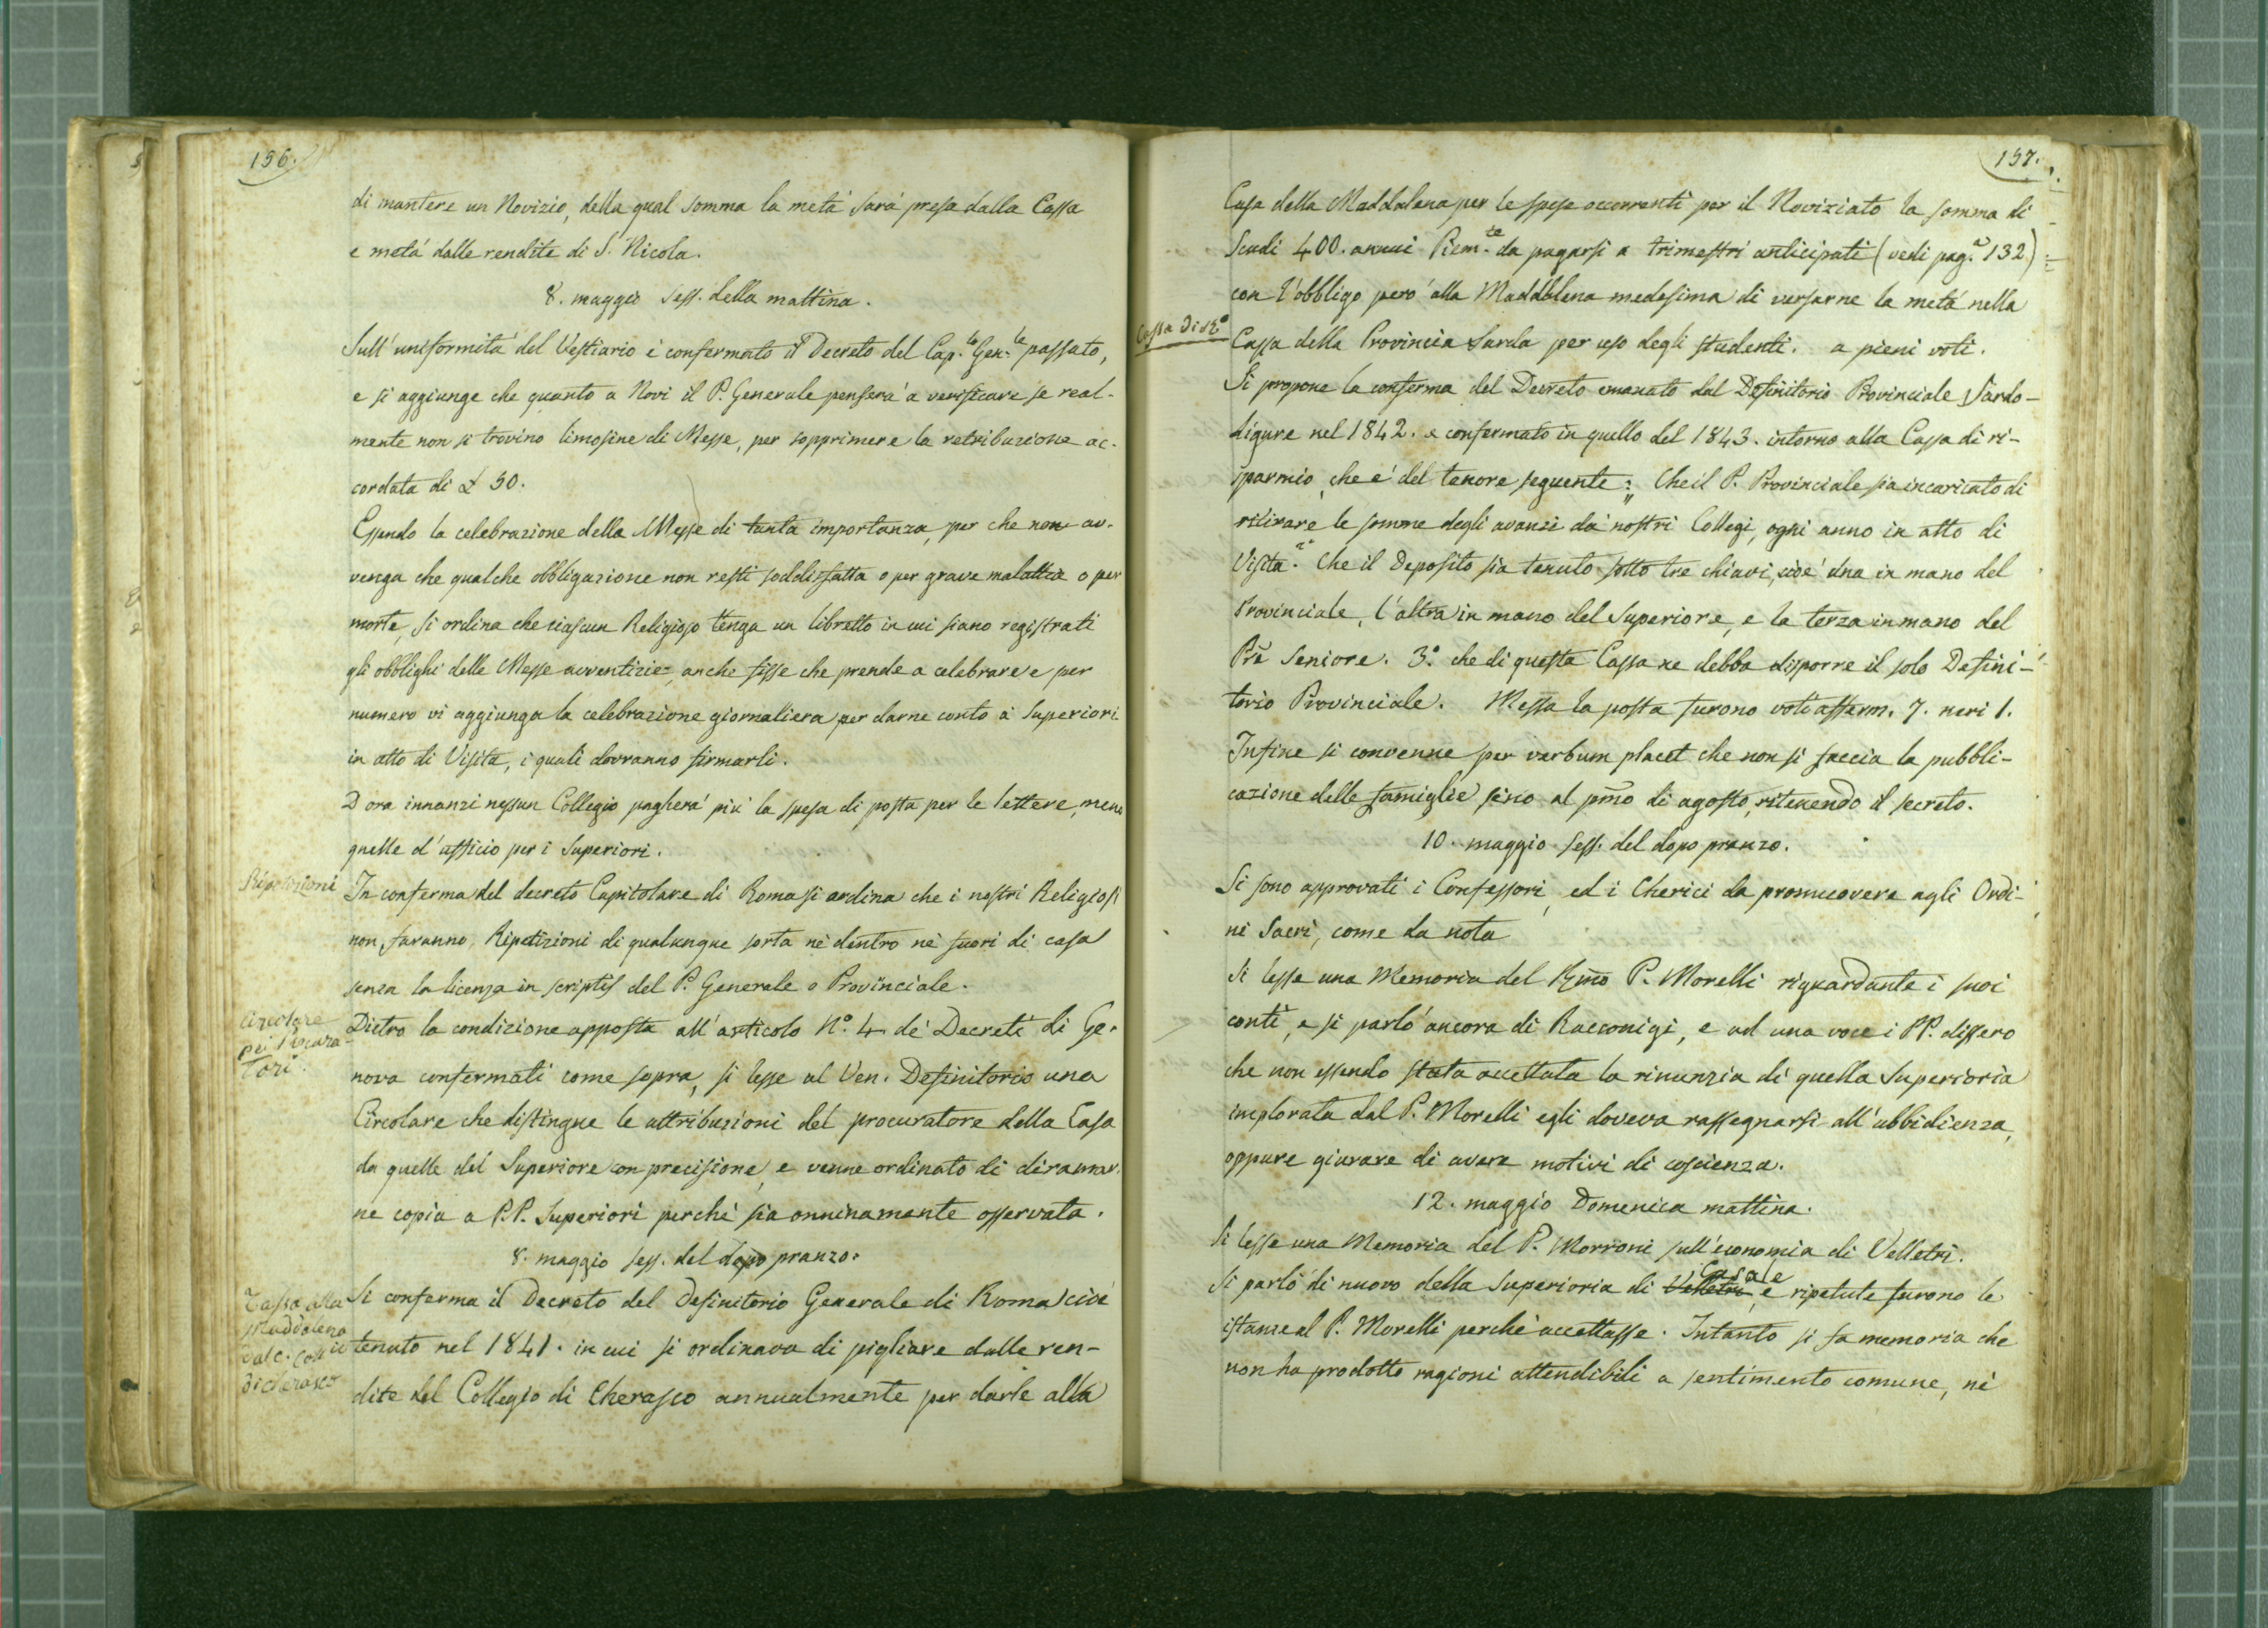 156.
di mantere un Novizio, della qual somma la metà sarà presa dalla Cassa
e metà dalle rendite di S. Nicola.
8. maggio Sess. della mattina.
Sull'uniformità del Vestiario è confermato il Decreto del Cap.lo Gen.le passato,
e si aggiunge che quanto a Novi il P. Generale penserà a verificare se real-
mente non si trovino limosine di Messe, per sopprimere la retribuzione ac-
cordata di £ 30.
Essendo la celebrazione della Messe di tanta importanza, per che non av-
venga che qualche obbligazione non resti soddisfatta o per grave malattia o per
morte, si ordina che ciascun Religioso tenga un libretto in cui siano registrati
gli obblighi delle Messe avventizie, anche fisse che prende a celebrare e per
numero vi aggiunga la celebrazione giornaliera per darne conto a' Superiori
in atto di Visita, i quali dovranno firmarli.
D'ora innanzi nessun Collegio pagherà più la spesa di posta per le lettere, meno
quelle d'ufficio per i Superiori.
Ripetizioni
In conferma del decreto Capitolare di Roma si ordina che i nostri Religiosi
non faranno Ripetizioni di qualunque sorta nè dentro nè fuori di casa
senza la licenza in scriptis del P. Generale o Provinciale.
Circolare
pei Procura
tori.
Dietro la condizione apposta all'articolo N.° 4 de' Decreti di Ge-
nova confermati come sopra, si lesse al Ven. Definitorio una
Circolare che distingue le attribuzioni del procuratore della Casa
da quelle del Superiore con precisione, e venne ordinato di diramar-
ne copia a P.P. Superiori perchè sia onninamente osservata.
8. maggio sess. del dopo pranzo.
Tassa alla
Maddalena
dal C. Coll.io
di Cherasco
Si conferma il Decreto del Definitorio Generale di Roma cioè
tenuto nel 1841. in cui si ordinava di pigliare dalle ren-
dite del Collegio di Cherasco annualmente per darle alla
157.
Casa della Maddalena per le spese occorrenti per il Noviziato la somma di
Scudi 400. annui Piem.te da pagarsi a trimestri anticipati (vedi pag.a 132)
con l'obbligo però alla Maddalena medesima di versarne la metà nella
Cassa di
Cassa della Provincia Sarda per uso degli studenti. a pieni voti.
Si propone la conferma del Decreto emanato dal Definitorio Provinciale Sardo-
Ligure nel 1842. e confermato in quello del 1843. intorno alla Cassa di ri-
sparmio, che è del tenore seguente: „ Che il P. Provinciale sia incaricato di
ritirare le somme degli avanzi da' nostri Collegi, ogni anno in atto di
Visita. 2° Che il Deposito sia tenuto sotto tre chiavi, cioè una in mano del
Provinciale, l'altra in mano del Superiore, e la terza in mano del
Prẽ Seniore. 3.° che di questa Cassa ne debba disporre il solo Defini-
torio Provinciale. Messa la posta furono voti afferm. 7. neri 1.
Infine si convenne per verbum placet che non si faccia la pubbli-
cazione delle famiglie fino al pm̃o di agosto, ritenendo il secreto.
10. maggio sess. del dopo pranzo.
Si sono approvati i Confessori, ed i Cherici da promuovere agli Ordi-
ni Sacri, come da nota
Si lesse una Memoria del Rm̃o P. Morelli riguardante i suoi
conti, e si parlò ancora di Racconigi, e ad una voce i PP. dissero
che non essendo stata accettata la rinunzia di quella Superioria
implorata dal P. Morelli egli doveva rassegnarsi all'ubbidienza,
oppure giurare di avere motivi di coscienza.
12. maggio Domenica mattina.
Si lesse una Memoria del P. Morroni sull'economia di Velletri.
Si parlò di nuovo della Superioria di Velletri Casale, e ripetute furono le
istanze al P. Morelli perchè accettasse. Intanto si fa memoria che
non ha prodotto ragioni attendibili a sentimento comune, nè